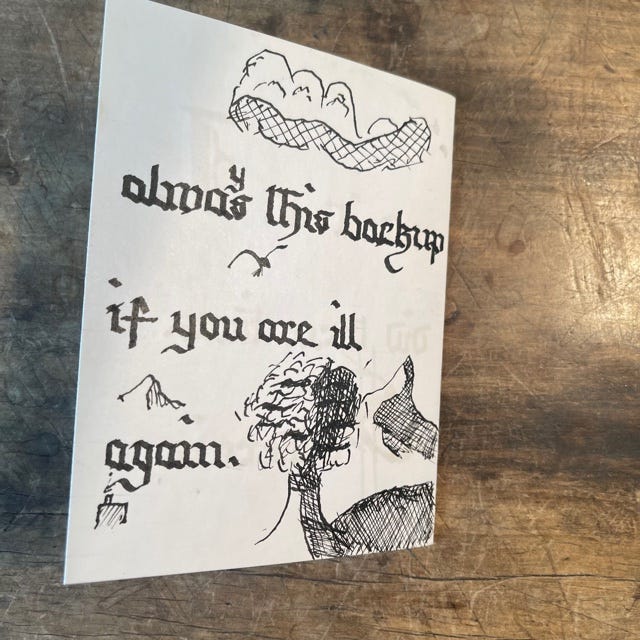 always this backup
if you are ill
again.